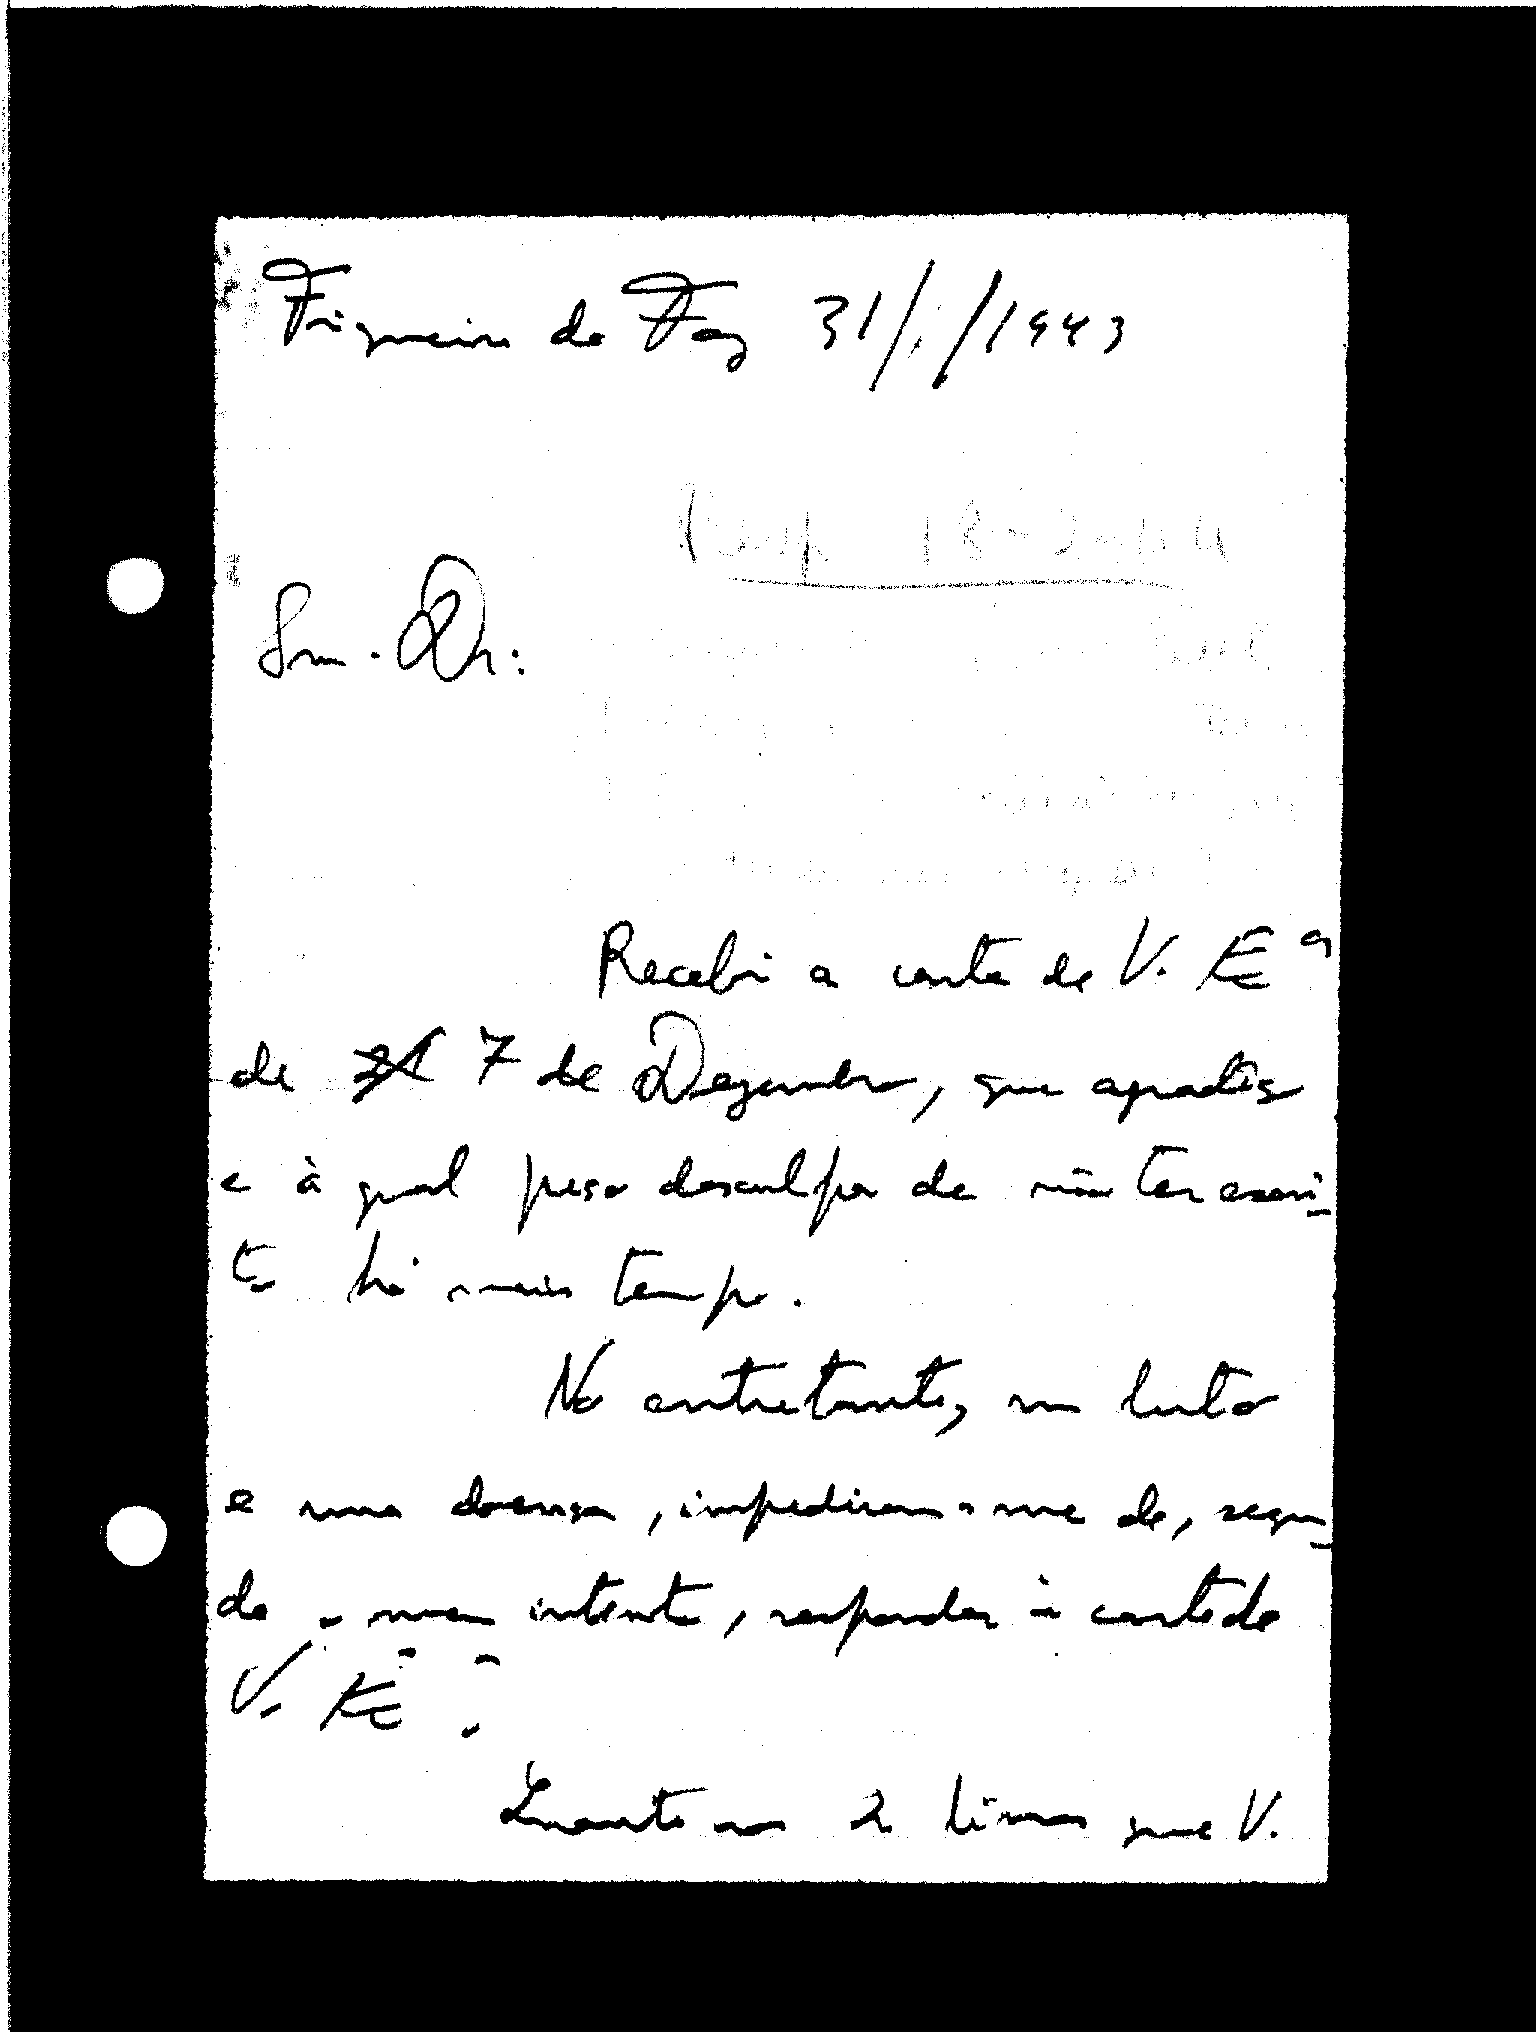 Figueira da Foz 31/1/1943
Resp 18-2-44
Snr. Dr.:
Recebi a carta de V. Eª
de 7 de Dezembro, que agradeço
e à qual peço desculpa de não ter escri-
to há mais tempo.
No entretanto, um luto
e uma doença, impediram-me de, segun-
do o meu intento, responder à carta de
V. Eª.
Quanto aos 2 livros que V.